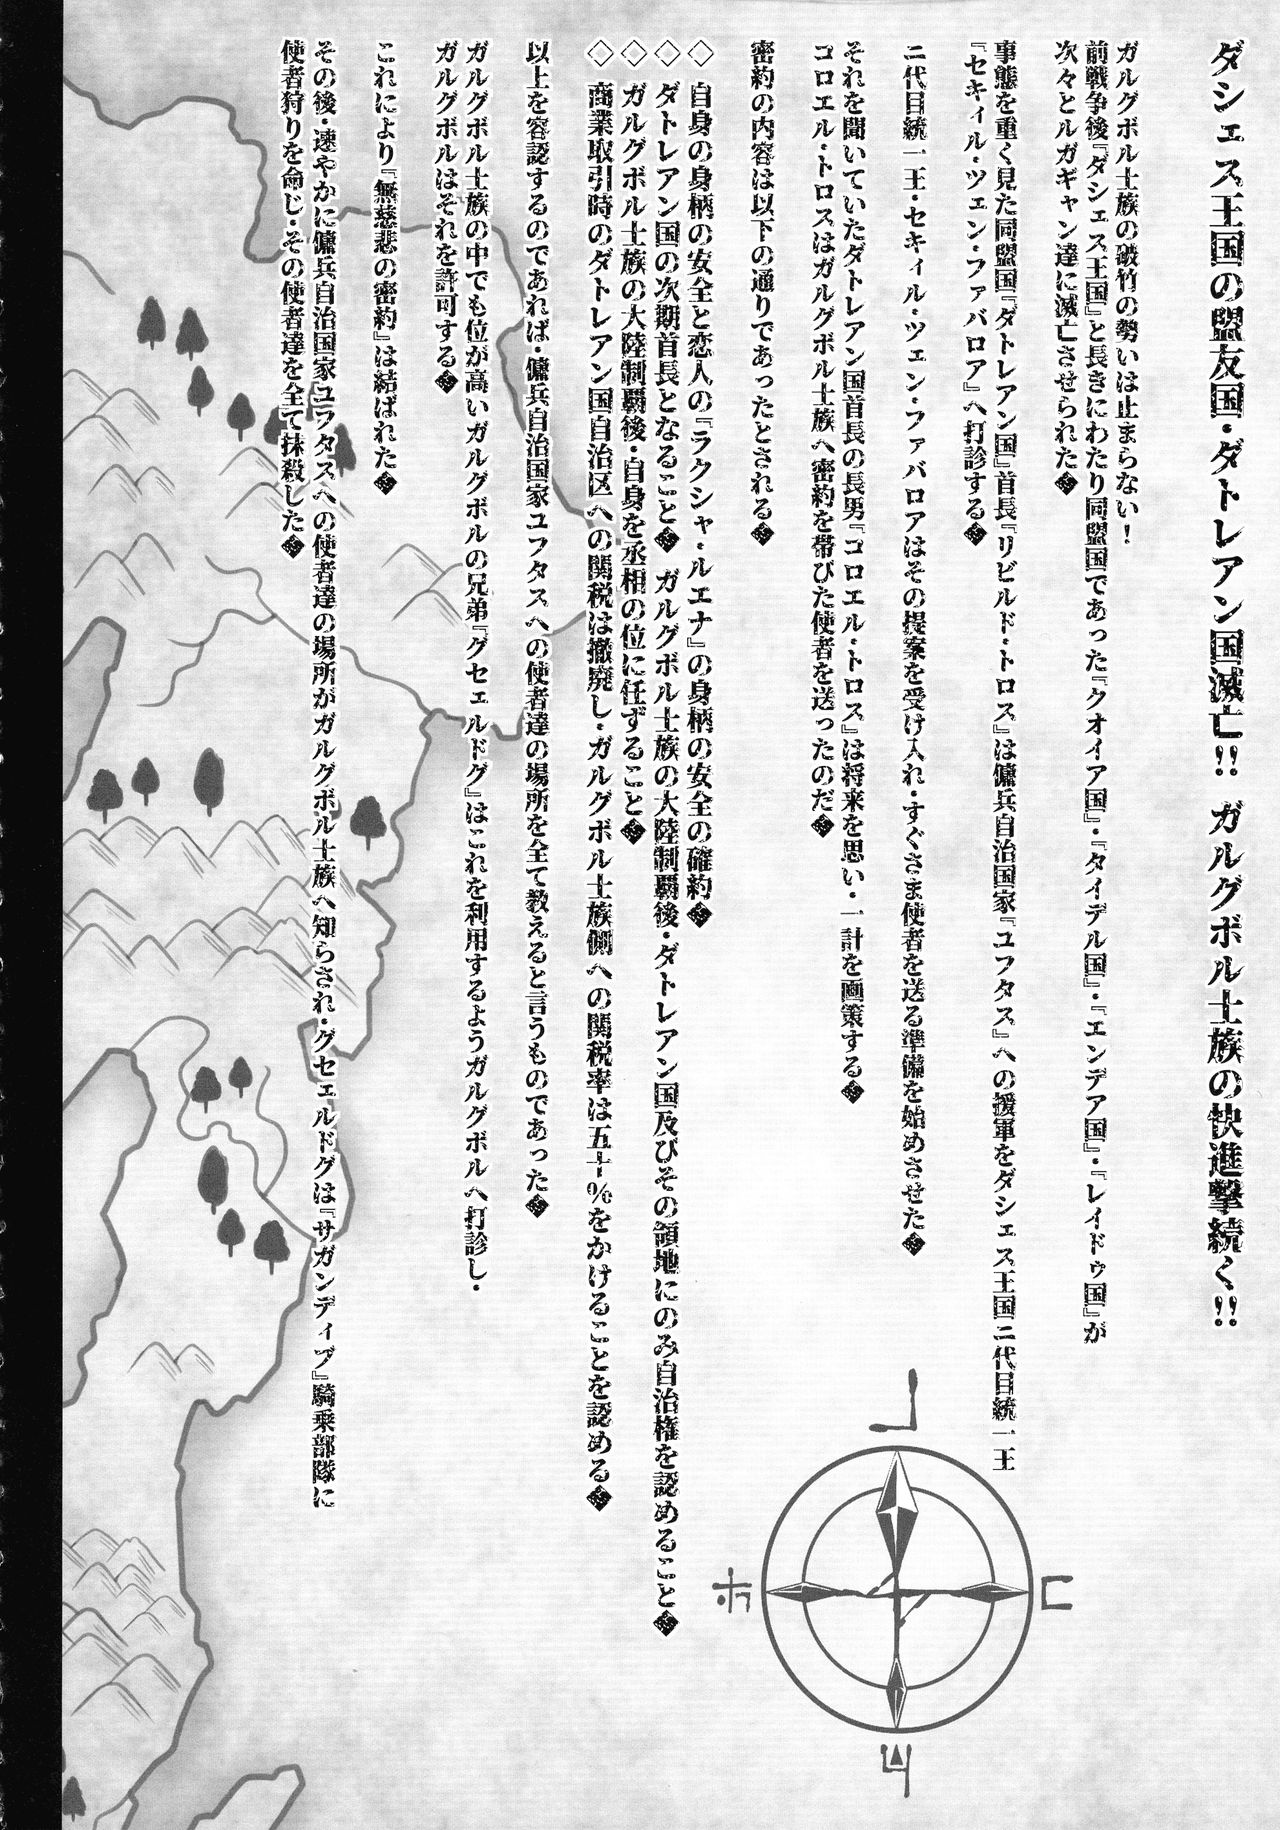 ダシェス王国の盟友国・ダトレアン国滅亡!! ガルグボル士族の快進撃続く!!
ガルグボル士族の破竹の勢いは止まらない!
前戦争後『ダシェス王国』と長きにわたり同盟国であった『クオイア国』・『タイデル国』・『エンデア国』・『レイドゥ国』が
次々とルガギャン達に滅亡させられた◆
事態を重く見た同盟国『ダトレアン国』首長『リビルド・トロス』は傭兵自治国家『ユフタス』への援軍をダシェス王国二代目統一王
『セキィル・ツェン・ファバロア』へ打診する◆
二代目統一王・セキィル・ツェン・ファバロアはその提案を受け入れ・すぐさま使者を送る準備を始めさせた◆
それを聞いていたダトレアン国首長の長男『コロエル・トロス』は将来を思い・一計を画策する◆
コロエル・トロスはガルグボル士族へ密約を帯びた使者を送ったのだ◆
密約の内容は以下の通りであったとされる◆
◇ 自身の身柄の安全と恋人の『ラクシャ・ルエナ』の身柄の安全の確約◆
◇ ダトレアン国の次期首長となること◆ ガルグボル士族の大陸制覇後・ダトレアン国及びその領地にのみ自治権を認めること◆
◇ ガルグボル士族の大陸制覇後・自身を丞相の位に任ずること◆
◇ 商業取引時のダトレアン国自治区への関税は撤廃し・ガルグボル士族側への関税率は五十%をかけることを認める◆
以上を容認するのであれば・傭兵自治国家ユフタスへの使者達の場所を全て教えると言うものであった◆
ガルグボル士族の中でも位が高いガルグボルの兄弟『グセェルドグ』はこれを利用するようガルグボルへ打診し・
ガルグボルはそれを許可する◆
これにより『無慈悲の密約』は結ばれた◆
その後・速やかに傭兵自治国家ユフタスへの使者達の場所がガルグボル士族へ知らされ・グセェルドグは『サガンディブ』騎乗部隊に
使者狩りを命じ・その使者達を全て抹殺した◆